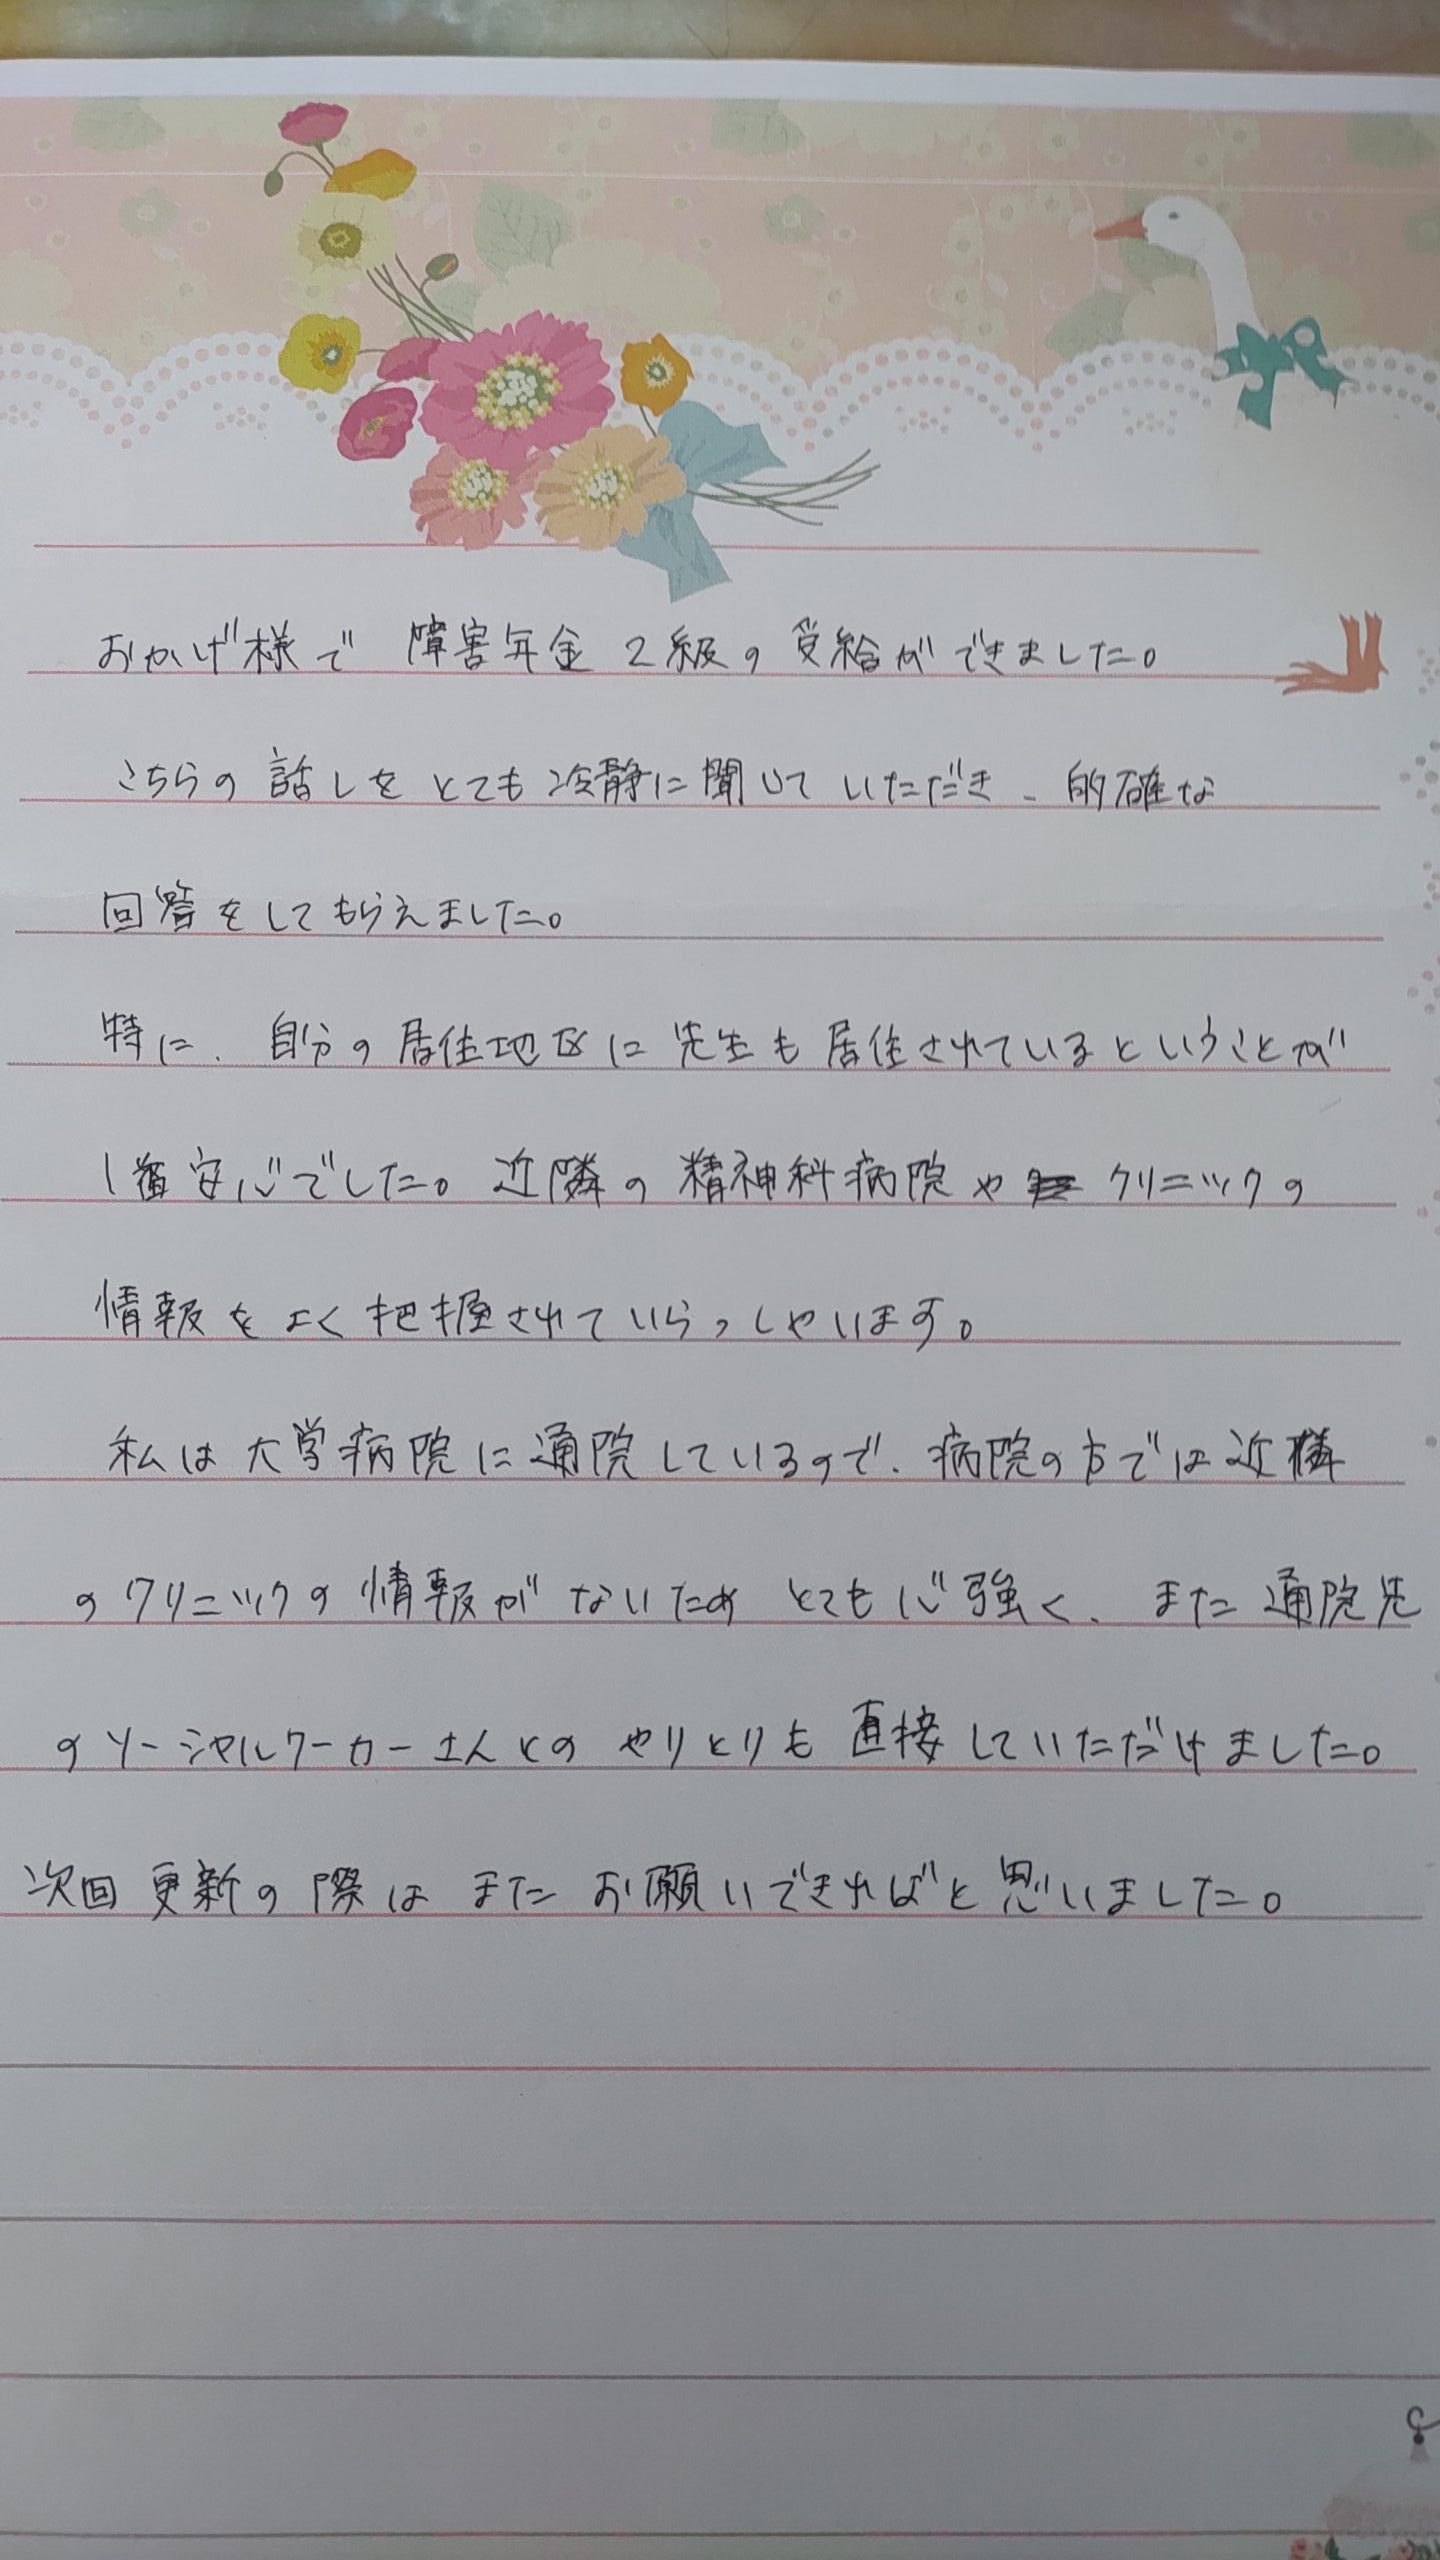 おかげ様で 障害年金2級の受給ができました。
こちらの話しをとても冷静に聞いていただき、的確な
回答をしてもらえました。
特に、自分の居住地区に先生も居住されているということが
1番安心でした。近隣の精神科病院や クリニックの
情報をよく把握されていらっしゃいます。
私は大学病院に通院しているので、病院の方では近隣
のクリニックの情報がないためとても心強く、また通院先
のソーシャルワーカーさんとのやりとりも直接していただけました。
次回更新の際はまたお願いできればと思いました。